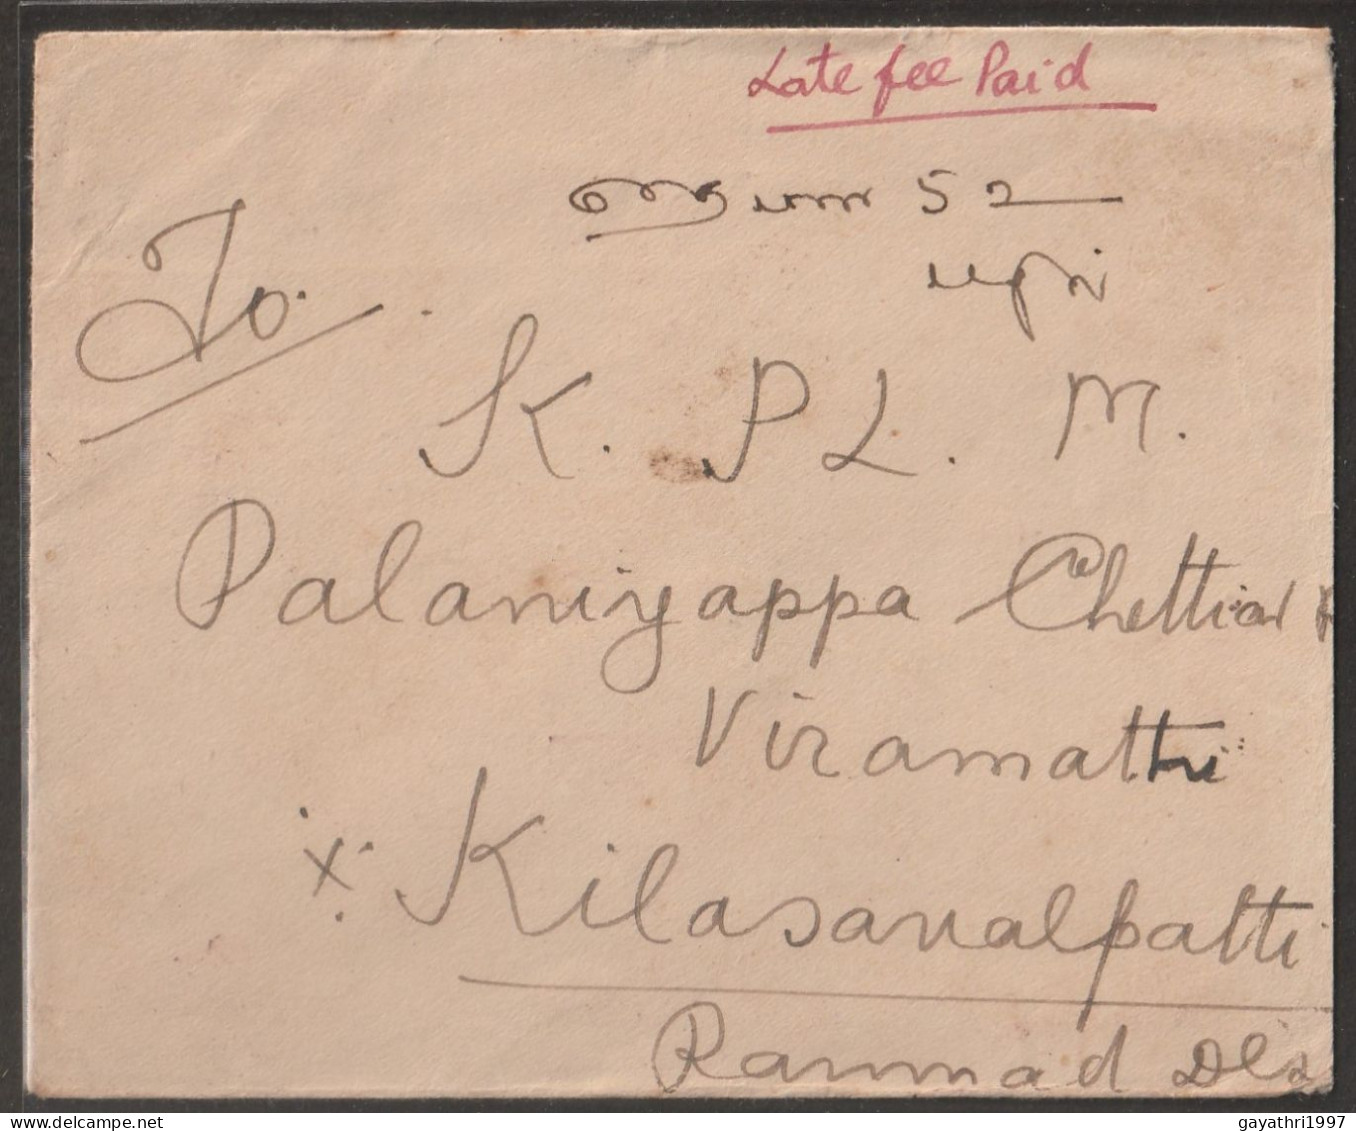 Late fee Paid
52
To.
K. P L. M.
Palaniyappa Chettiar
Viramathi
x Kilasavalpatti
Ramnad
gayathri1997